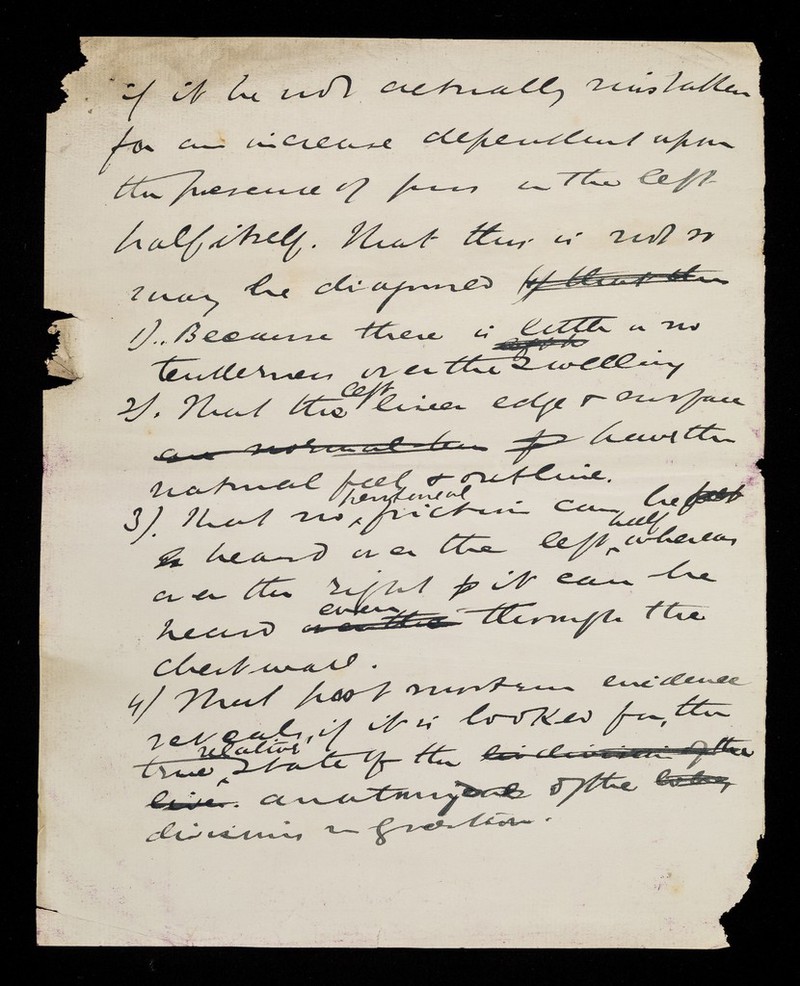 if it be not actually mistaken
for an increase dependent upon
the presence of pus in the left
half itself. That this is not so
may be diagnosed if that the
1).. Because there is little or no
tenderness over the swelling
2). That the left liver edge & surface
are normal have the
natural feel & outline.
3). That no peritoneal friction can be felt
heard over the left half, whereas
over the right it can be
heard even over the through the
chest wall.
4) That post mortem evidence
reveals, if it is looked for, the
true relative state of the division of the
liver. anatomy of the lobes
divisions in question.